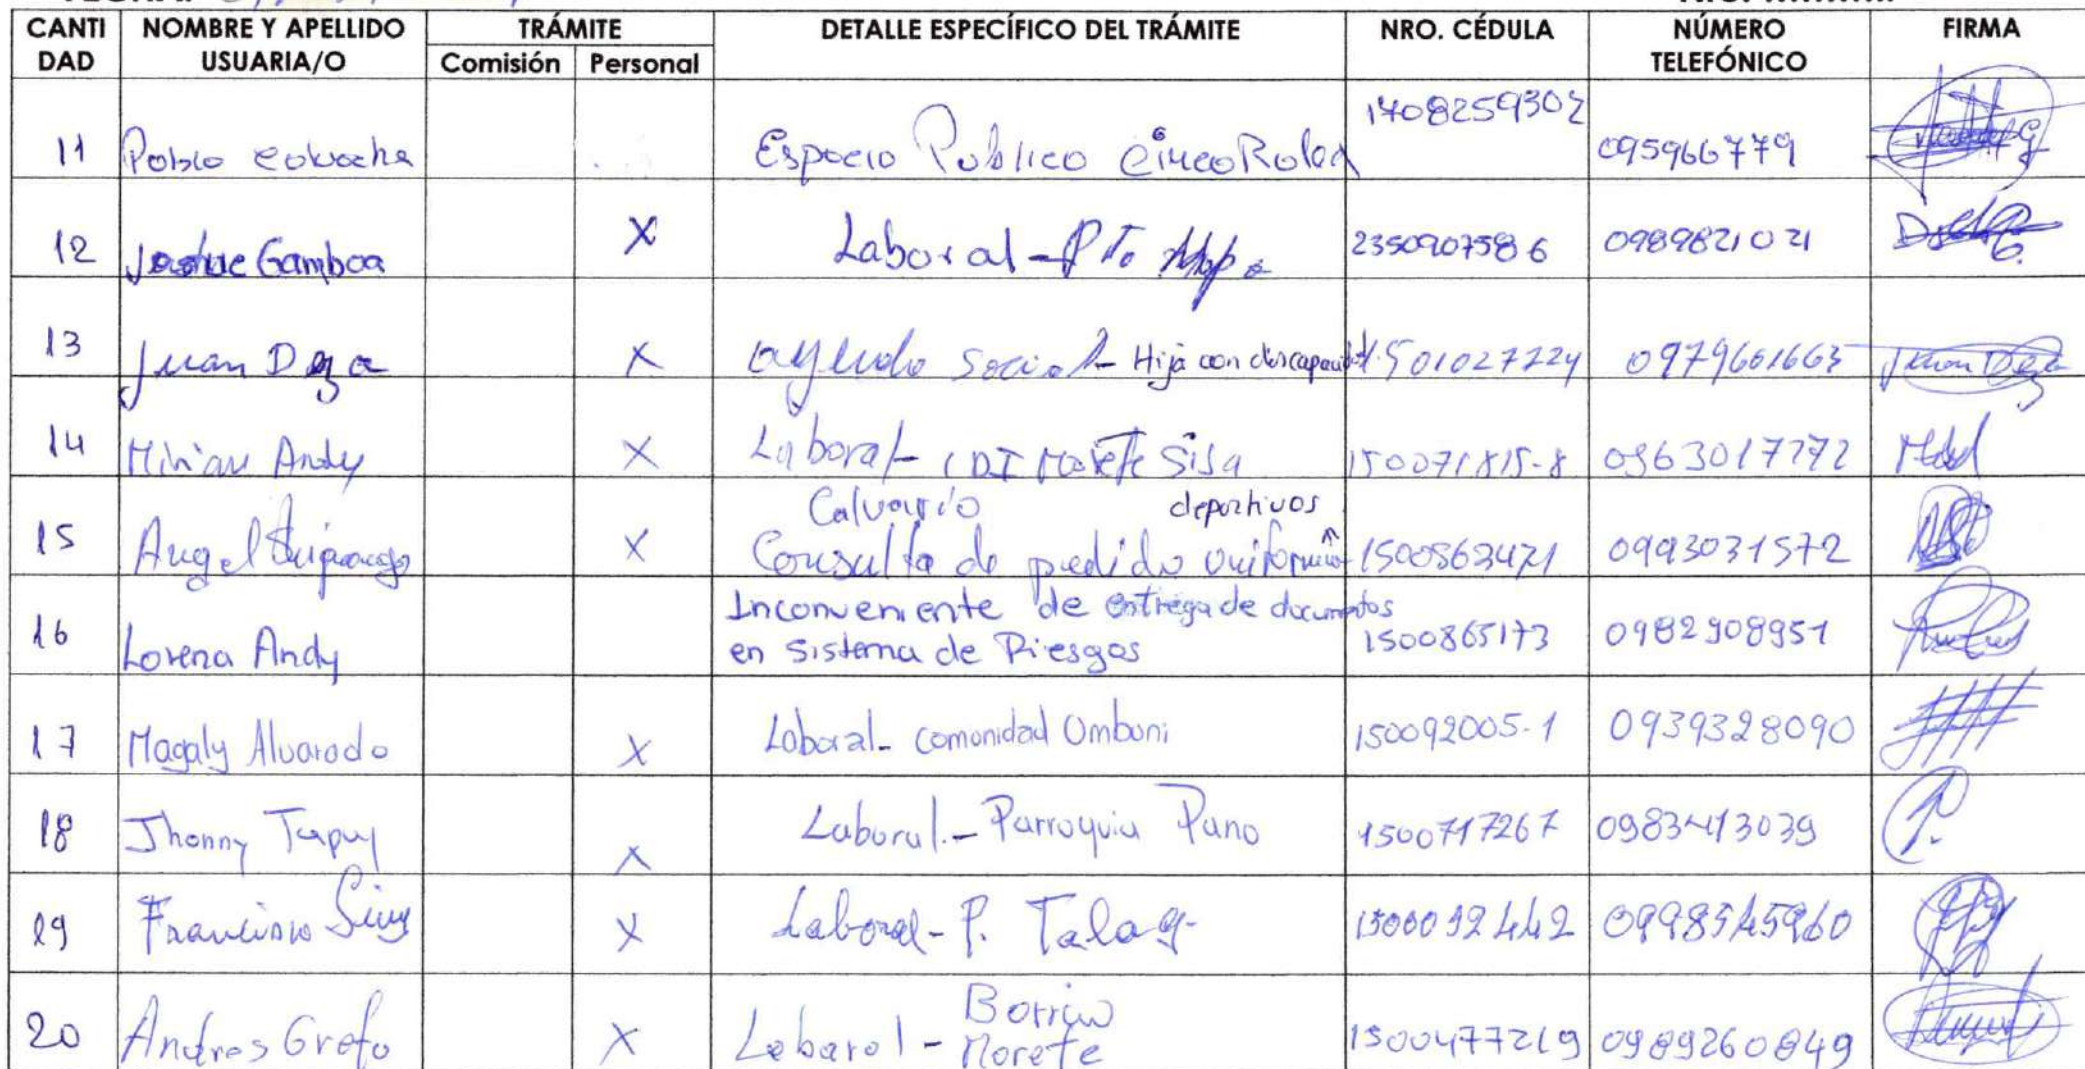 CANTI DAD NOMBRE Y APELLIDO USUARIA/O TRÁMITE Comisión Personal DETALLE ESPECÍFICO DEL TRÁMITE NRO. CÉDULA NÚMERO TELEFÓNICO FIRMA
11 Espacio Publico 1708259302 095966779
12 Gamboa X Laboral - Pto 2350907586 0989821021
13 Juan X Social - Hija con 1501027224 0979661663
14 Andy X Laboral - CDI Morete Sisa 150071815-8 0963017272
15 Angel X Calvario deportivos
Consulta de pedido 1500563421 0993031572
16 Lorena Andy Inconveniente de entrega de documentos
en Sistema de Riesgos 1500865173 0982908951
17 Magaly Alvarado X Laboral - comunidad Umbuni 150092005-1 0939328090
18 Jhonny Tapuy X Laboral. - Parroquia Pano 1500717267 0983413039
19 Francisco X Laboral - P. Talag 0998545960
20 Andres Grefa X Laboral - Barrio
Morete 1500477219 0989260849